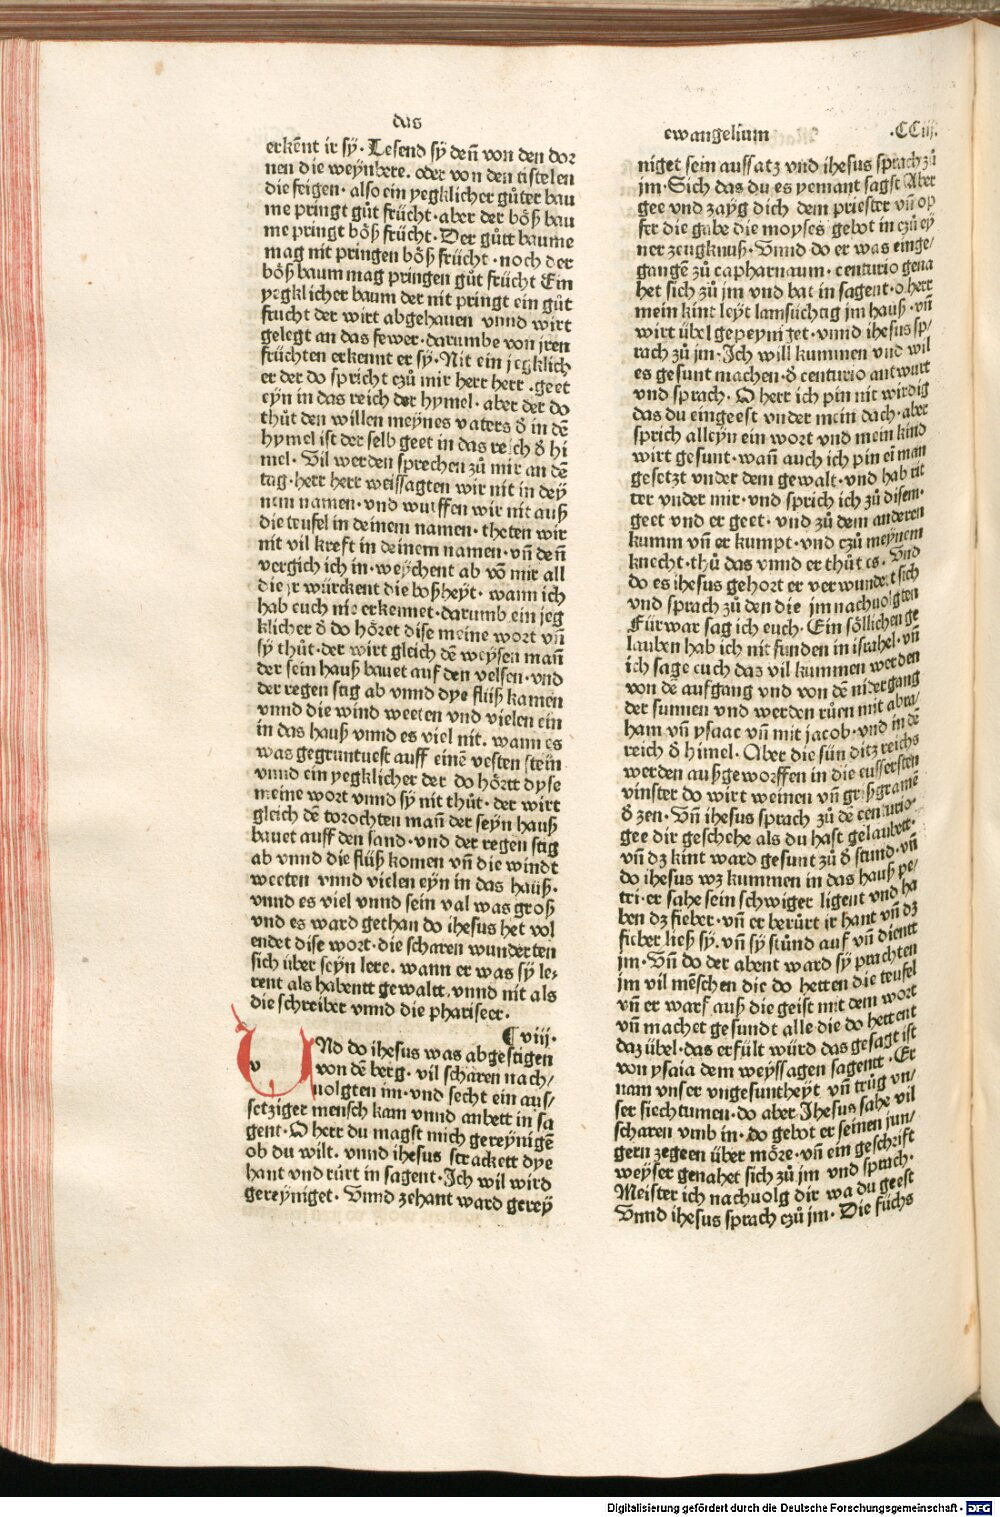 das
erkēnt ir sÿ· Lesend sÿ den̄ von den dor
nen die weÿnbere. oder von den tistelen
die feigen· also ein yegklicher gůter bau
me pringt gůt frücht· aber der böß bau
me pringt böß frücht· Der gůtt baume
mag nit pringen böß frücht· noch der
böß baum mag pringen gůt frücht Ein
yegklicher baum der nit pringt ein gůt
frucht der wirt abgehauen vnnd wirt
gelegt an das fewer· darumbe von jren
früchten erkennt er sÿ· Nit ein jegklich
er der do spricht czů mir herr herr .geet
eÿn in das reich der hymel· aber der do
thůt den willen meÿnes vaters ð in dē
hymel ist der selb geet in das reich ð hi
mel· Vil werden sprechen zů mir an dē
tag· herr herr weissagten wir nit in deÿ
nem namen· vnd wurffen wir nit auß
die teufel in deinem namen· theten wir
nit vil kreft in deinem namen· vn̄ den̄
vergich ich in· weÿchent ab vō mir all
die jr würckent die boßheÿt· wann ich
hab euch nie erkennet· darumb ein jeg
klicher ð do höret dise meine wort vn̄
sÿ thůt· der wirt gleich dē weÿsen man̄
der sein hauß bauet auf den velsen· vnd
der regen stig ab vnnd dye flüß kamen
vnnd die wind weeten vnd vielen ein
in das hauß vnnd es viel nit. wann es
was gegruntuest auff einē vesten stein
vnnd ein yegklicher der do hörtt dyse
meine wort vnnd sÿ nit thůt· der wirt
gleich dē torochten man̄ der seÿn hauß
bauet auff den sand· vnd der regen stig
ab vnnd die flüß komen vn̄ die windt
weeten vnnd vielen eÿn in das hauß·
vnnd es viel vnnd sein val was groß
vnd es ward gethan do ihesus het vol
endet dise wort· die scharen wunderten
sich über seÿn lere. wann er was sÿ le⸗
rent als habentt gewaltt. vnnd nit als
die schreiber vnnd die phariseer·
¶ viij·
v Nd do ihesus was abgestigen
von dē berg· vil scharen nach/
uolgten im· vnd secht ein aus/
setziger mensch kam vnnd anbett in sa
gent· O herr du magst mich gereÿnigē
ob du wilt. vnnd ihesus strackett dye
hant vnd rürt in sagent· Ich wil wird
gereÿniget· Vnnd zehant ward gereÿ
ewangelium ·CCiij·
niget sein aussatz vnd ihesus sprach zů
jm· Sich das du es yemant sagst Aber
gee vnd zaÿg dich dem priester vn̄ op
fer die gabe die moyses gebot in czů eÿ
ner zeugknuß· Vnnd do er was einge/
gangē zů capharnaum· centurio gena
het sich zů jm vnd bat in sagent· o herr
mein kint leÿt lamsüchtig jm hauß· vn̄
wirt übel gepeyniget· vnnd ihesus sp/
rach zů jm· Ich will kummen vnd wil
es gesunt machen· ð centurio antwurt
vnd sprach. O herr ich pin nit wirdig
das du eingeest vnder mein dach· aber
sprich alleÿn ein wort vnd mein kind
wirt gesunt· wan̄ auch ich pin ei man
gesetzt vnder dem gewalt· vnd hab rit
ter vnder mir· vnd sprich ich zů disem·
geet vnd er geet· vnd zů dem anderen
kumm vn̄ er kumpt· vnd czů meÿnem
knecht· thů das vnnd er thůt es. Vnd
do es ihesus gehort er verwundert sich
vnd sprach zů den die jm nachuolgten
Fürwar sag ich euch· Ein söllichen ge
lauben hab ich nit funden in israhel· vn̄
ich sage euch das vil kummen werden
von dē aufgang vnd von dē nidergang
der sunnen vnd werden růen mit abra/
ham vn̄ ysaac vn̄ mit jacob· vnd in dē
reich ð himel· Ober die sün ditz reichs
werden außgeworffen in die eussersten
vinster do wirt weinen vn̄ grißgramē
ð zen· Vn̄ ihesus sprach zů dē centurio·
gee dir geschehe als du hast gelaubett·
vn̄ dz kint ward gesunt zů ð stund· vn̄
do ihesus wz kummen in das hauß pe/
tri· er sahe sein schwiger ligent vnd ha
ben dz fieber· vn̄ er berürt ir hant vn̄ dz
fieber ließ sÿ. vn̄ sÿ stůnd auf vn̄ dientt
jm· Vn̄ do der abent ward sÿ prachten
jm vil mēschen die do hetten die teufel
vn̄ er warf auß die geist mit dem wort
vn̄ machet gesundt alle die do hettent
daz übel· das erfült würd das gesagt ist
von ysaia dem weÿssagen sagentt· Er
nam vnser vngesuntheÿt vn̄ trůg vn/
ser siechtumen· do aber Ihesus sahe vil
scharen vmb in· do gebot er seinen jun/
gern zegeen über möre· vn̄ ein geschrift
weÿser genahet sich zů jm vnd sprach·
Meister ich nachuolg dir wa du geest
Vnnd ihesus sprach czů jm· Die füchs
Digitalisierung gefördert durch die Deutsche Forschungsgemeinschaft - DFG